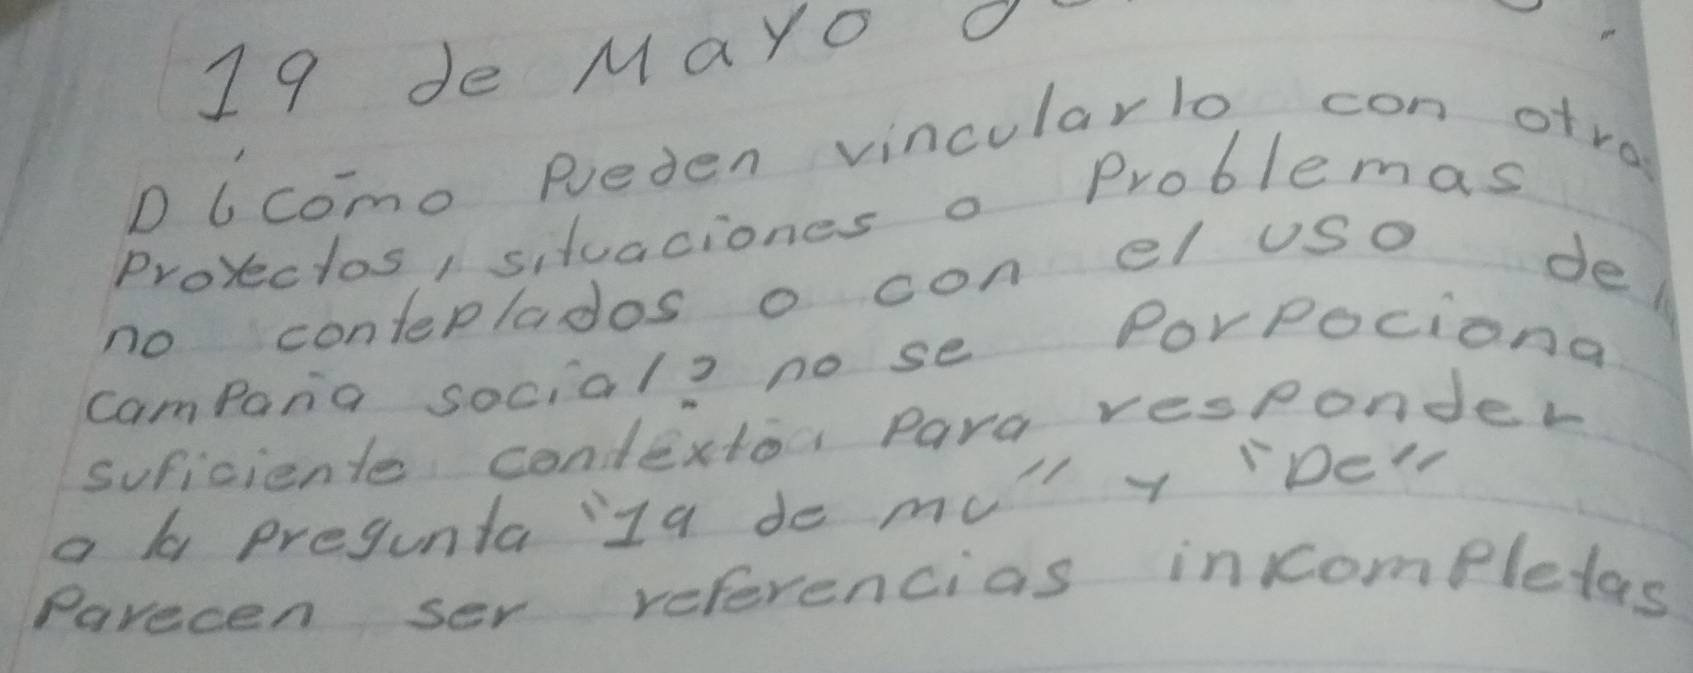 19 de Mayo
D ¿cómo Pueden vincularlo con otra
Proyectos, situaciones o Problemas
no conteplados o con el uso de
campaña social? no se Porpociona
suficiente contexto, Para responder
a la pregunta "19 de mu" y "De"
Parecen ser referencias incompletas